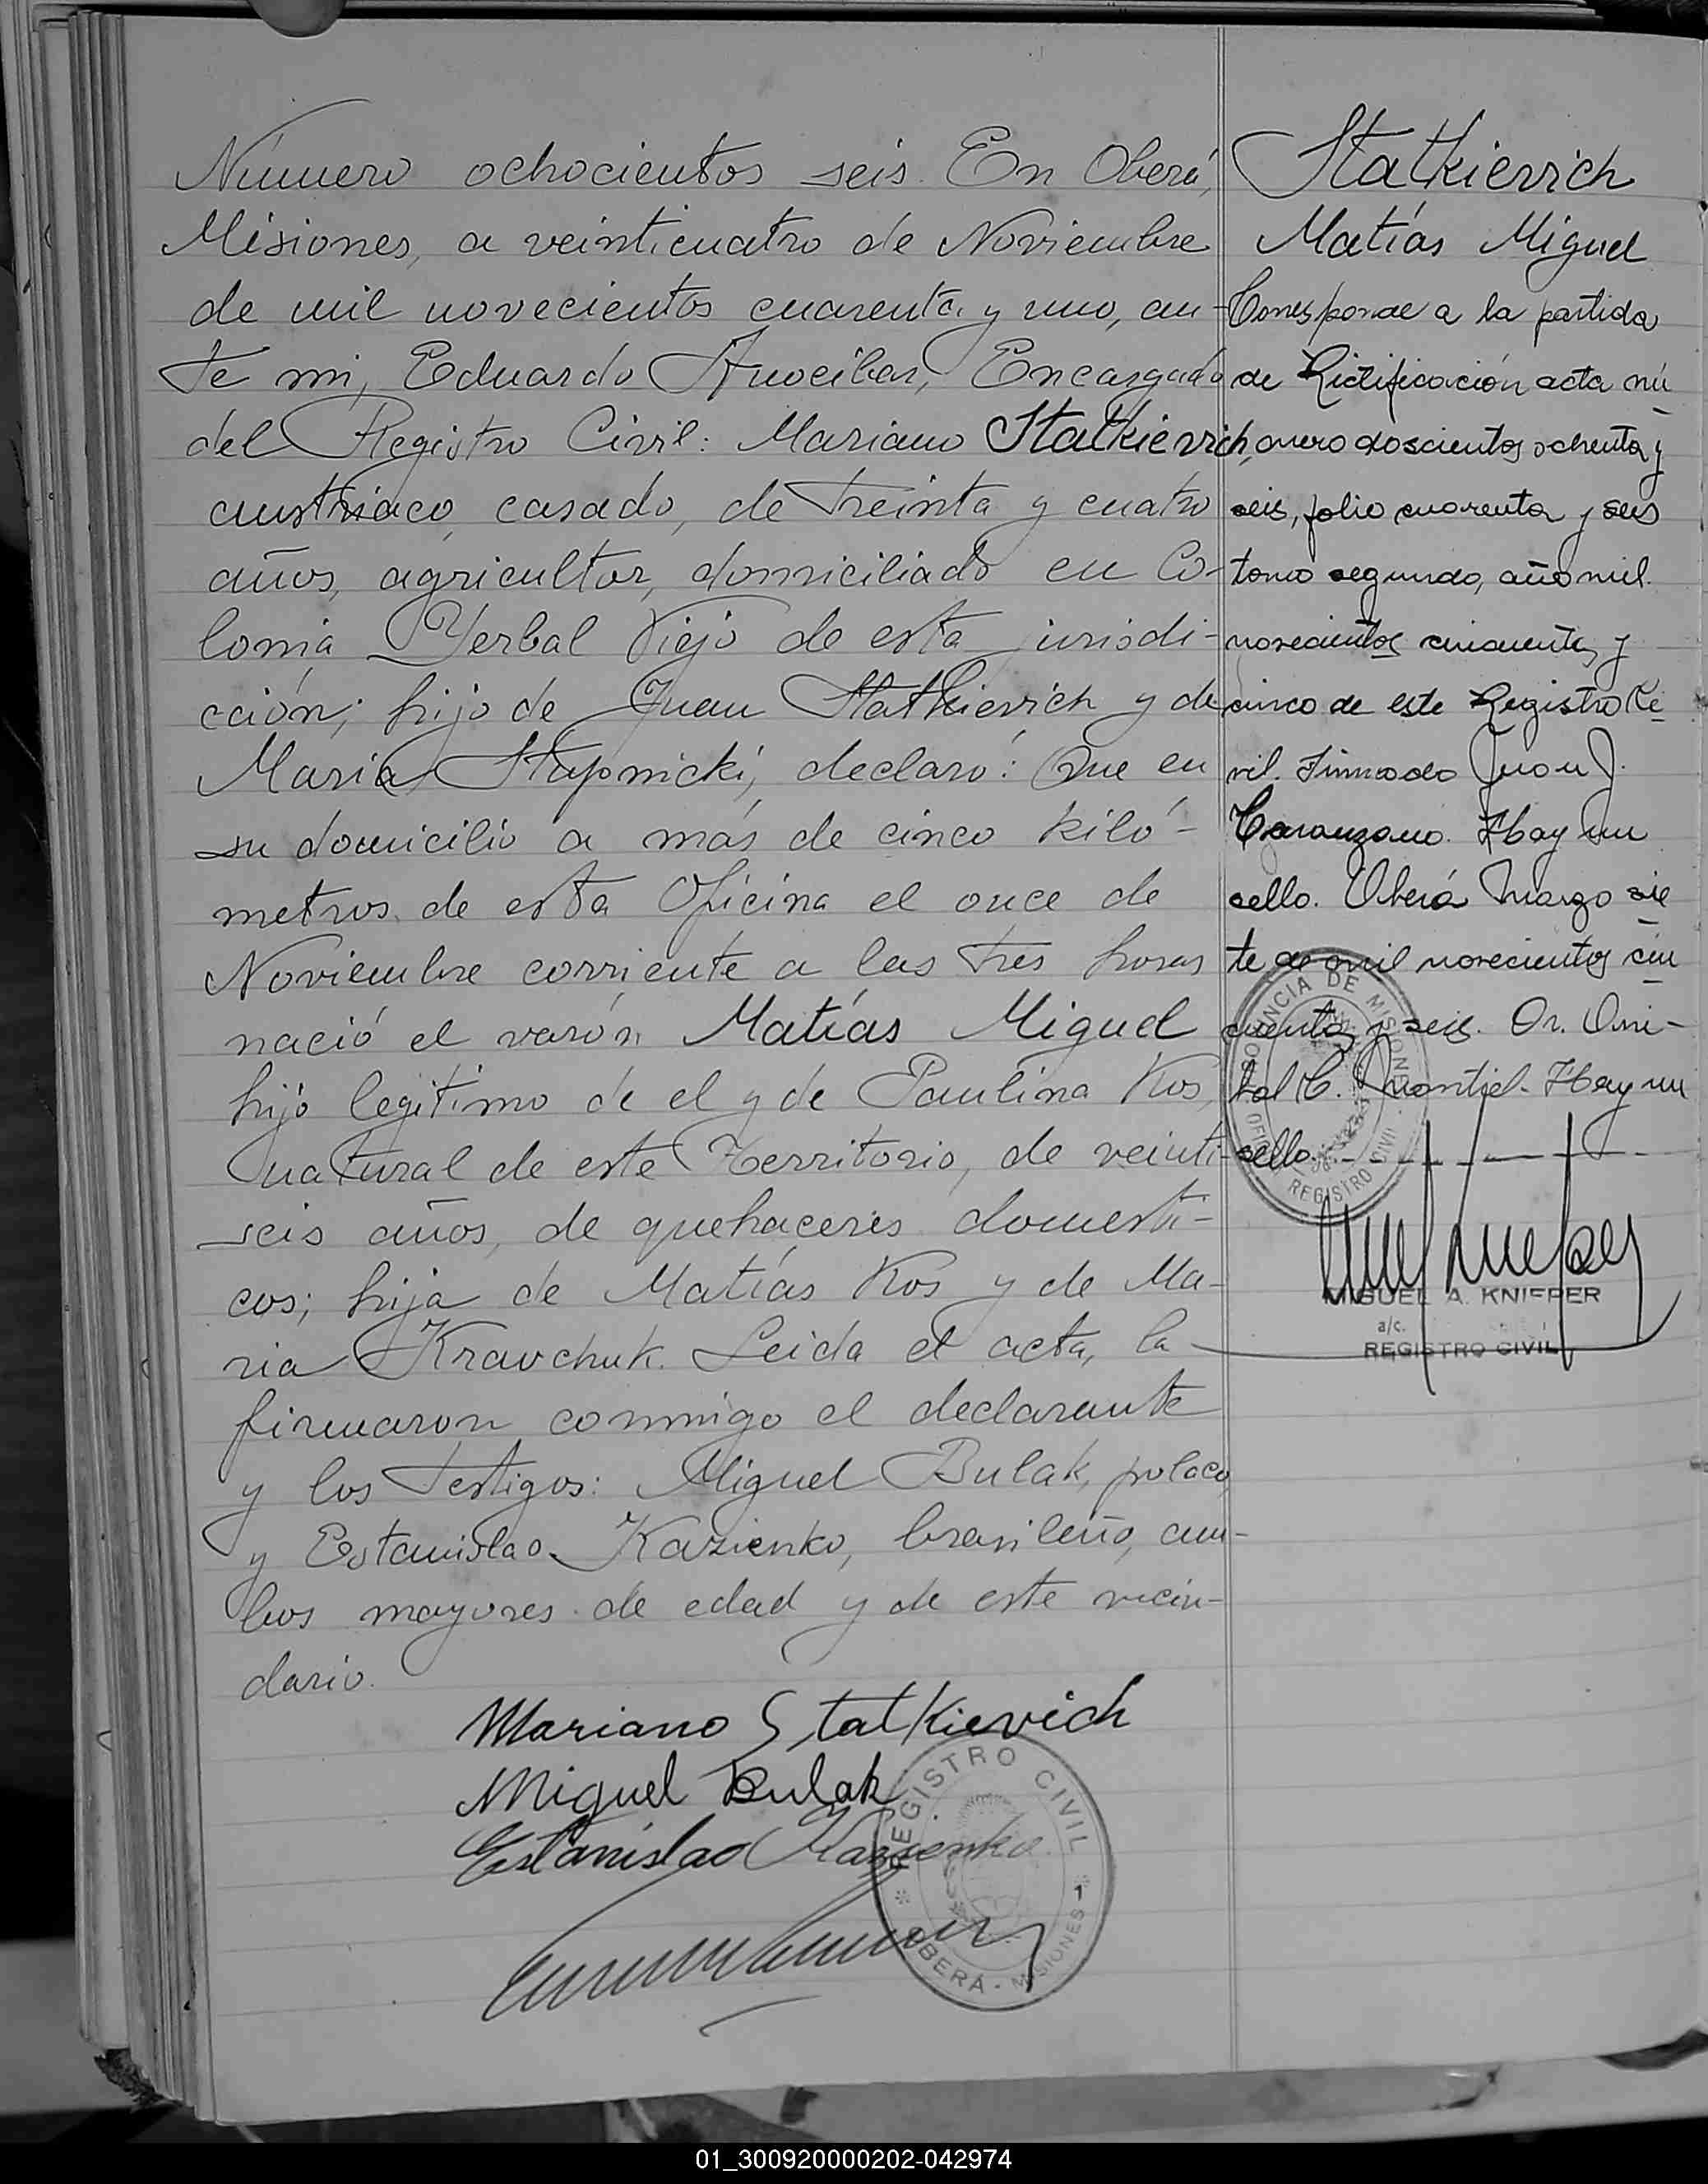 Número ochocientos seis. En Oberá,
Misiones, a veinticuatro de Noviembre
de mil novecientos cuarenta y uno, an-
te mi, Eduardo Encargado
del Registro Civil: Mariano Statkievich,
austriaco, casado, de treinta y cuatro
años, agricultor, domiciliado en Co-
lonia Yerbal Viejo de esta jurisdi-
cción; hijo de Juan Statkievich y de
Maria Stupnicki, declaró: Que en
su domicilio a más de cinco kiló-
metros de esta Oficina el once de
Noviembre corriente a las tres horas
nació el varón Matías Miguel
hijo legitimo de el y de Paulina Kos,
natural de este Territorio, de veinti-
seis años, de quehaceres domesti-
cos; hija de Matías Kos y de Ma-
ria Kravchuk. Leida el acta, la
firmaron conmigo el declarante
y los testigos: Miguel Bulak, polaco,
y Estanislao Kazienko, brasileño, am-
bos mayores de edad y de este vecin-
dario.
Mariano Statkievich
Miguel Bulak
Estanislao Kazienko
REGISTRO CIVIL
OBERÁ - MISIONES
1
Statkievich
Matías Miguel
Corresponde a la partida
de Rictificación acta nú
mero doscientos ochenta y
seis, folio cuarenta y seis
tomo segundo, año mil
novecientos cincuenta y
cinco de este Registro Ci
vil. Firmado Juan J.
Caranzano. Hay un
sello. Oberá Marzo sie
te de mil novecientos cin
cuenta y seis. Or. Oni-
C. Montiel. Hay un
sello.
PROVINCIA DE MISIONES
REGISTRO CIVIL
MIGUEL A. KNIEPER
a/c.
REGISTRO CIVIL
01_300920000202-042974